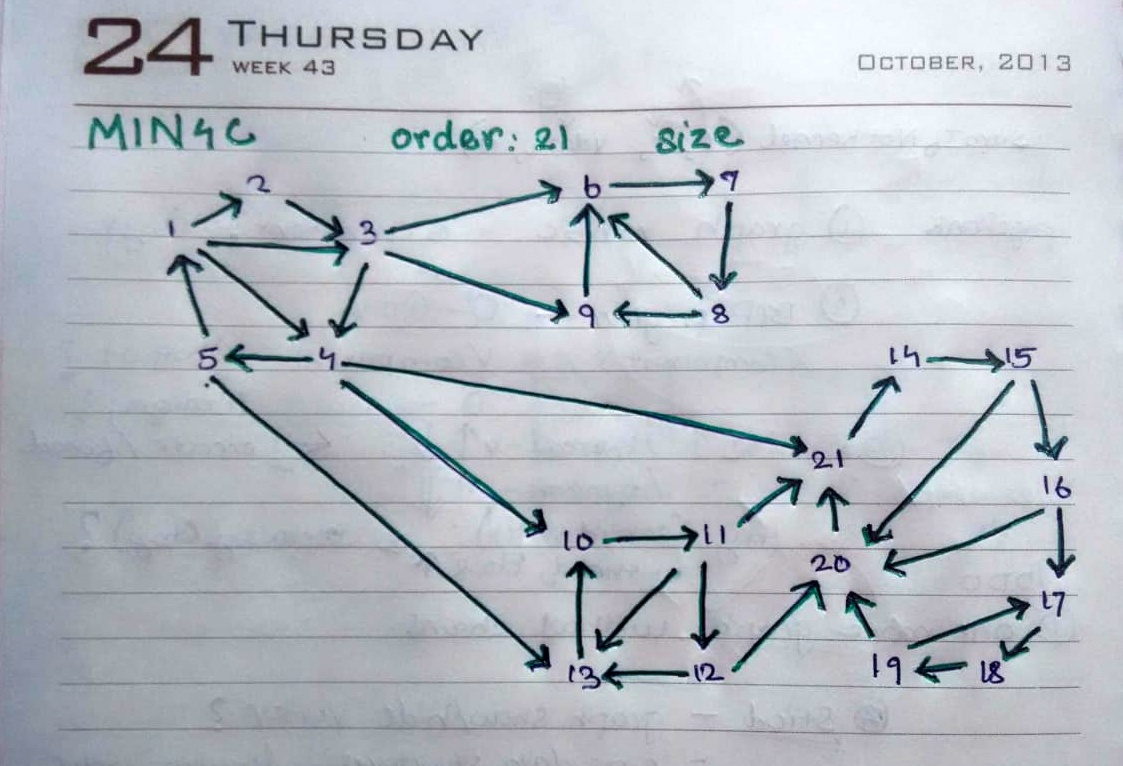 24 THURSDAY
WEEK 43
OCTOBER, 2013
MIN4C order: 21 size
2 6 7
1 3
9 8
5 4 14 15
21
16
10 11
20
17
13 12 19 18